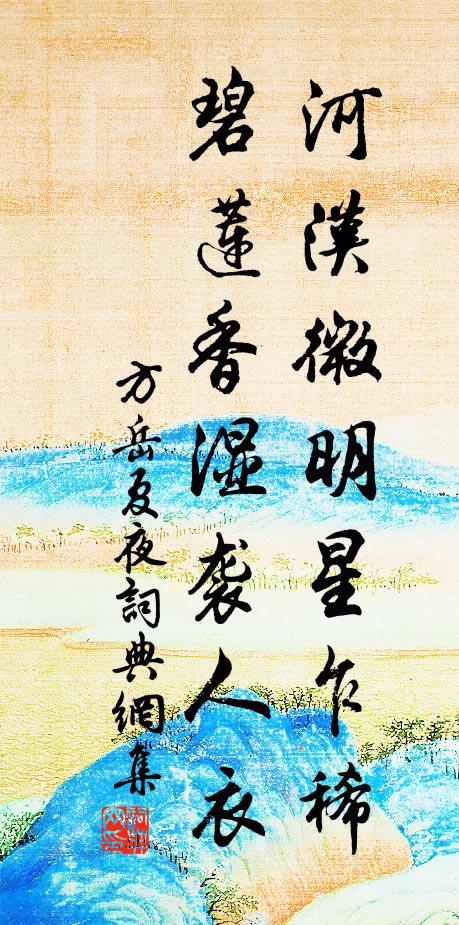 河漢微明星乍稀
碧蓮香湿袭人衣
方岳夏夜詞典網集